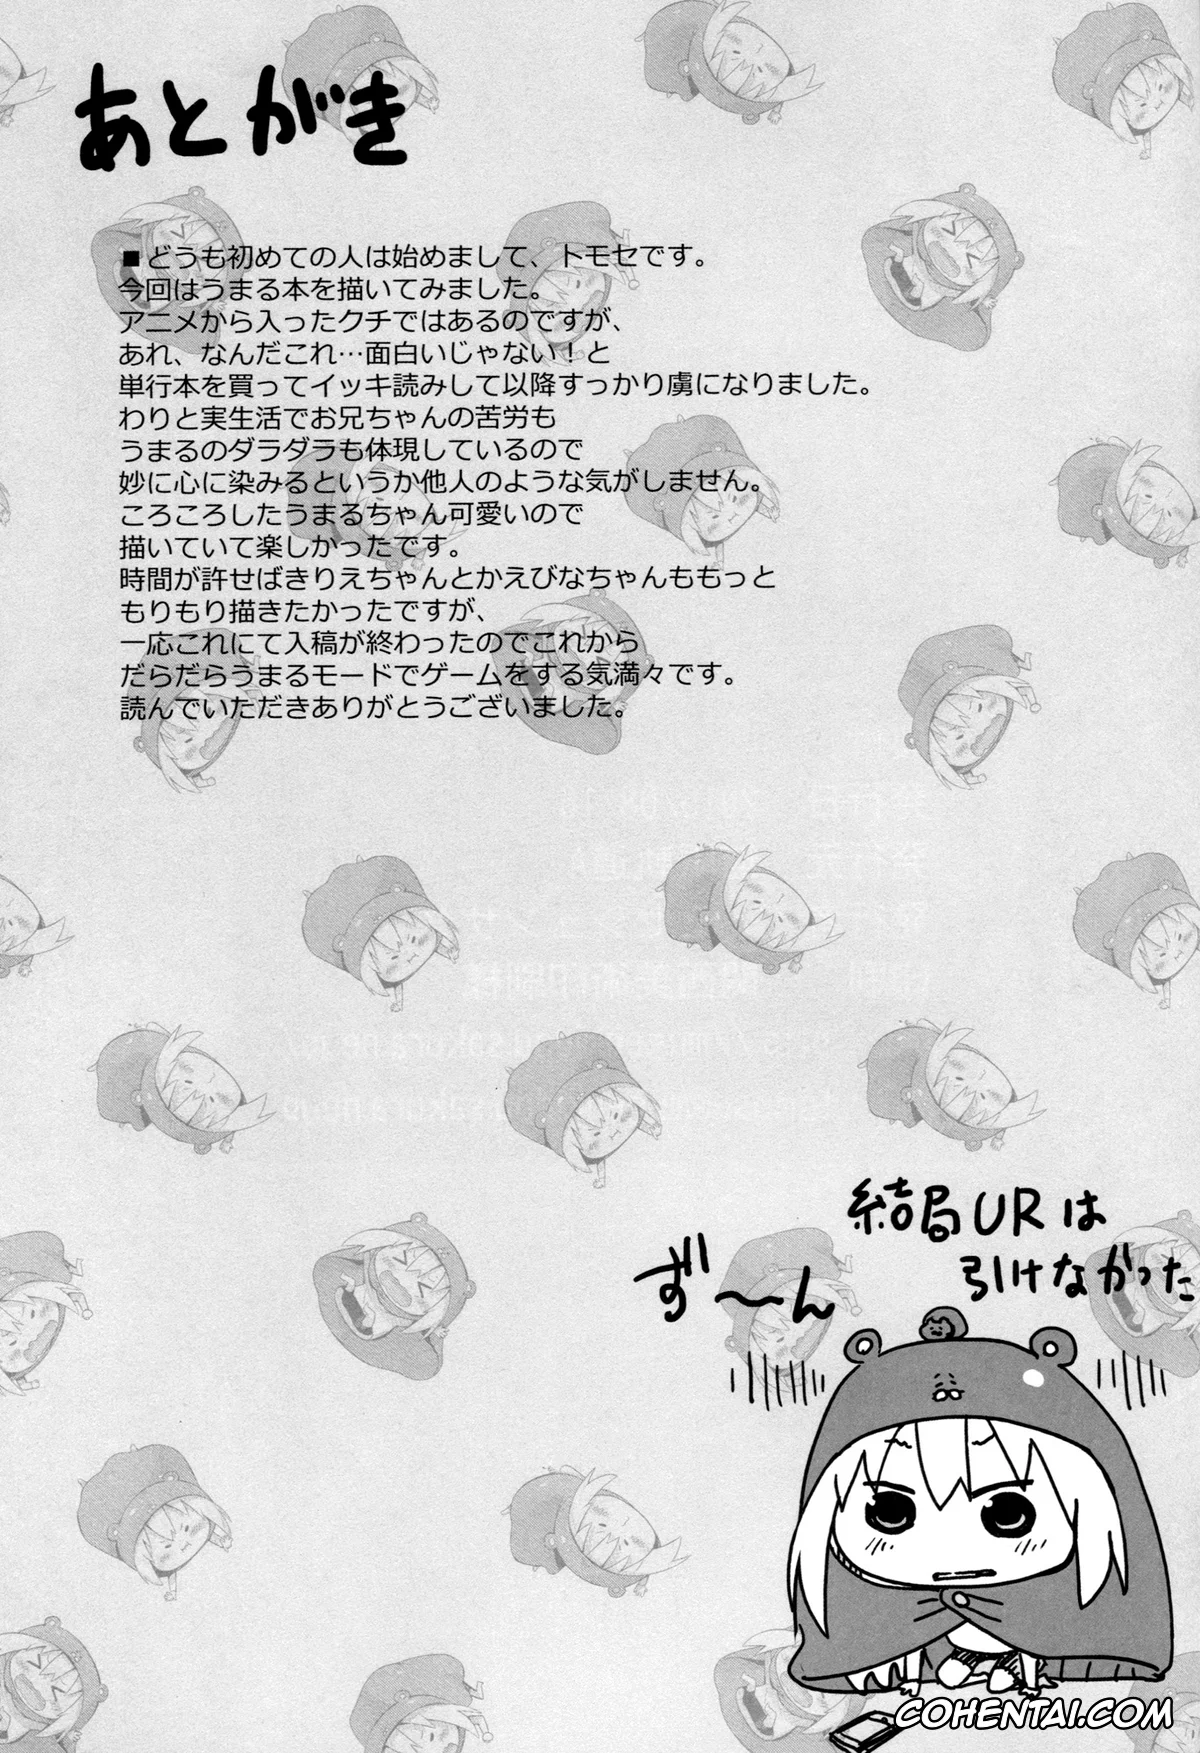 あとがき
■どうも初めての人は始めまして、トモセです。
今回はうまる本を描いてみました。
アニメから入ったクチではあるのですが、
あれ、なんだこれ…面白いじゃない！と
単行本を買ってイッキ読みして以降すっかり虜になりました。
わりと実生活でお兄ちゃんの苦労も
うまるのダラダラも体現しているので
妙に心に染みるというか他人のような気がしません。
ころころしたうまるちゃん可愛いので
描いていて楽しかったです。
時間が許せばきりえちゃんとかえびなちゃんももっと
もりもり描きたかったですが、
一応これにて入稿が終わったのでこれから
だらだらうまるモードでゲームをする気満々です。
読んでいただきありがとうございました。
結局URは
引けなかった
ず～ん
COHENTAI.COM